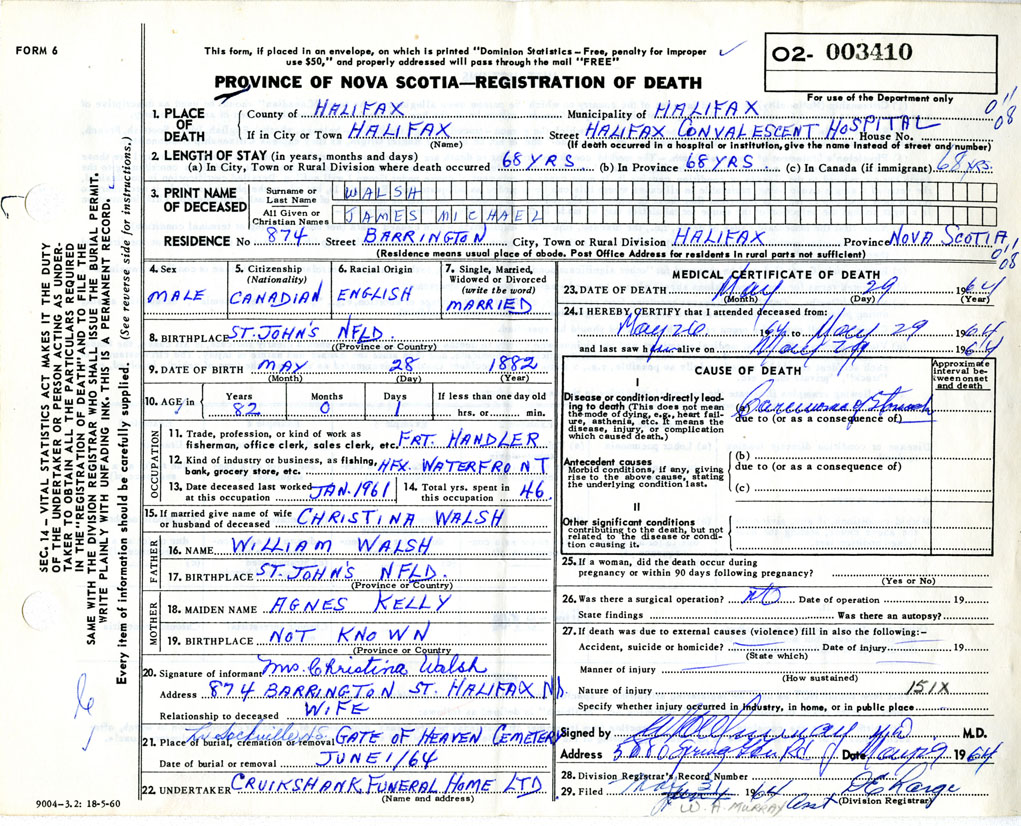 FORM 6
This form, if placed in an envelope, on which is printed "Dominion Statistics – Free, penalty for improper
use $50," and properly addressed will pass through the mail "FREE"
02- 003410
PROVINCE OF NOVA SCOTIA—REGISTRATION OF DEATH
For use of the Department only
1. PLACE OF DEATH
County of HALIFAX Municipality of HALIFAX
If in City or Town HALIFAX Street HALIFAX CONVALESCENT HOSPITAL House No.
(Name) (If death occurred in a hospital or institution, give the name instead of street and number)
2. LENGTH OF STAY (in years, months and days)
(a) In City, Town or Rural Division where death occurred 68 YRS (b) In Province 68 YRS (c) In Canada (if immigrant) 68 YRS.
3. PRINT NAME OF DECEASED
Surname or Last Name WALSH
All Given or Christian Names JAMES MICHAEL
RESIDENCE No 874 Street BARRINGTON City, Town or Rural Division HALIFAX Province NOVA SCOTIA
(Residence means usual place of abode. Post Office Address for residents in rural parts not sufficient)
08
08
4. Sex
MALE
5. Citizenship (Nationality)
CANADIAN
6. Racial Origin
ENGLISH
7. Single, Married, Widowed or Divorced (write the word)
MARRIED
8. BIRTHPLACE ST. JOHN'S NFLD.
(Province or Country)
9. DATE OF BIRTH MAY 28 1882
(Month) (Day) (Year)
10. AGE in Years Months Days If less than one day old
82 0 1 hrs. or min.
OCCUPATION
11. Trade, profession, or kind of work as
fisherman, office clerk, sales clerk, etc. FRT. HANDLER
12. Kind of industry or business, as fishing,
bank, grocery store, etc. HFX. WATERFRONT
13. Date deceased last worked at this occupation JAN. 1961
14. Total yrs. spent in this occupation 46
15. If married give name of wife
or husband of deceased CHRISTINA WALSH
FATHER
16. NAME WILLIAM WALSH
17. BIRTHPLACE ST. JOHN'S NFLD.
(Province or Country)
MOTHER
18. MAIDEN NAME AGNES KELLY
19. BIRTHPLACE NOT KNOWN
(Province or Country)
20. Signature of informant Mrs. Christina Walsh
Address 874 BARRINGTON ST. HALIFAX
Relationship to deceased WIFE
21. Place of burial, cremation or removal GATE OF HEAVEN CEMETERY
Date of burial or removal JUNE 1/64
22. UNDERTAKER CRUIKSHANK FUNERAL HOME LTD
(Name and address)
9004–3.2: 18-5-60
MEDICAL CERTIFICATE OF DEATH
23. DATE OF DEATH May 29 1964
(Month) (Day) (Year)
24. I HEREBY CERTIFY that I attended deceased from:
May 1964 to May 29 1964
and last saw him alive on May 29 1964
CAUSE OF DEATH
Approximate interval between onset and death
I
Disease or condition directly leading to death (This does not mean
the mode of dying, e.g., heart failure, asthenia, etc. It means the
disease, injury, or complication
which caused death.)
(a) Carcinoma of Stomach
due to (or as a consequence of)
Antecedent causes
Morbid conditions, if any, giving
rise to the above cause, stating
the underlying condition last.
(b)
due to (or as a consequence of)
(c)
II
Other significant conditions
contributing to the death, but not
related to the disease or condition causing it.
25. If a woman, did the death occur during
pregnancy or within 90 days following pregnancy?
(Yes or No)
26. Was there a surgical operation? no Date of operation 19
State findings Was there an autopsy?
27. If death was due to external causes (violence) fill in also the following:–
Accident, suicide or homicide? Date of injury 19
(State which)
Manner of injury
(How sustained)
Nature of injury 151X
Specify whether injury occurred in industry, in home, or in public place
Signed by M.D.
Address Spring Garden Rd Date May 29 1964
28. Division Registrar's Record Number
29. Filed 1964
(Division Registrar)
W. A. MURRAY Asst
SEC. 14 – VITAL STATISTICS ACT MAKES IT THE DUTY
OF THE UNDERTAKER OR PERSON ACTING AS UNDER-
TAKER TO OBTAIN ALL THE PARTICULARS REQUIRED
IN THE "REGISTRATION OF DEATH" AND TO FILE THE
SAME WITH THE DIVISION REGISTRAR WHO SHALL ISSUE THE BURIAL PERMIT.
WRITE PLAINLY WITH UNFADING INK. THIS IS A PERMANENT RECORD.
Every item of information should be carefully supplied. (See reverse side for instructions.)